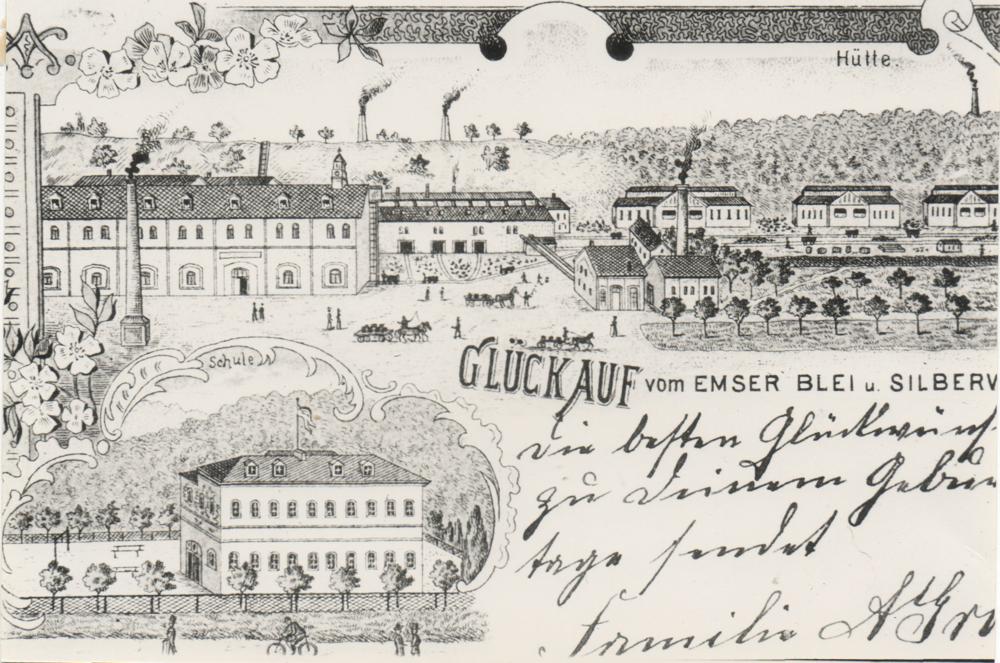 Hütte.
Schule
GLÜCKAUF vom EMSER BLEI u. SILBERW
Die besten Glückwünsch
zu Deinem Gebur
tage sendet
Familie